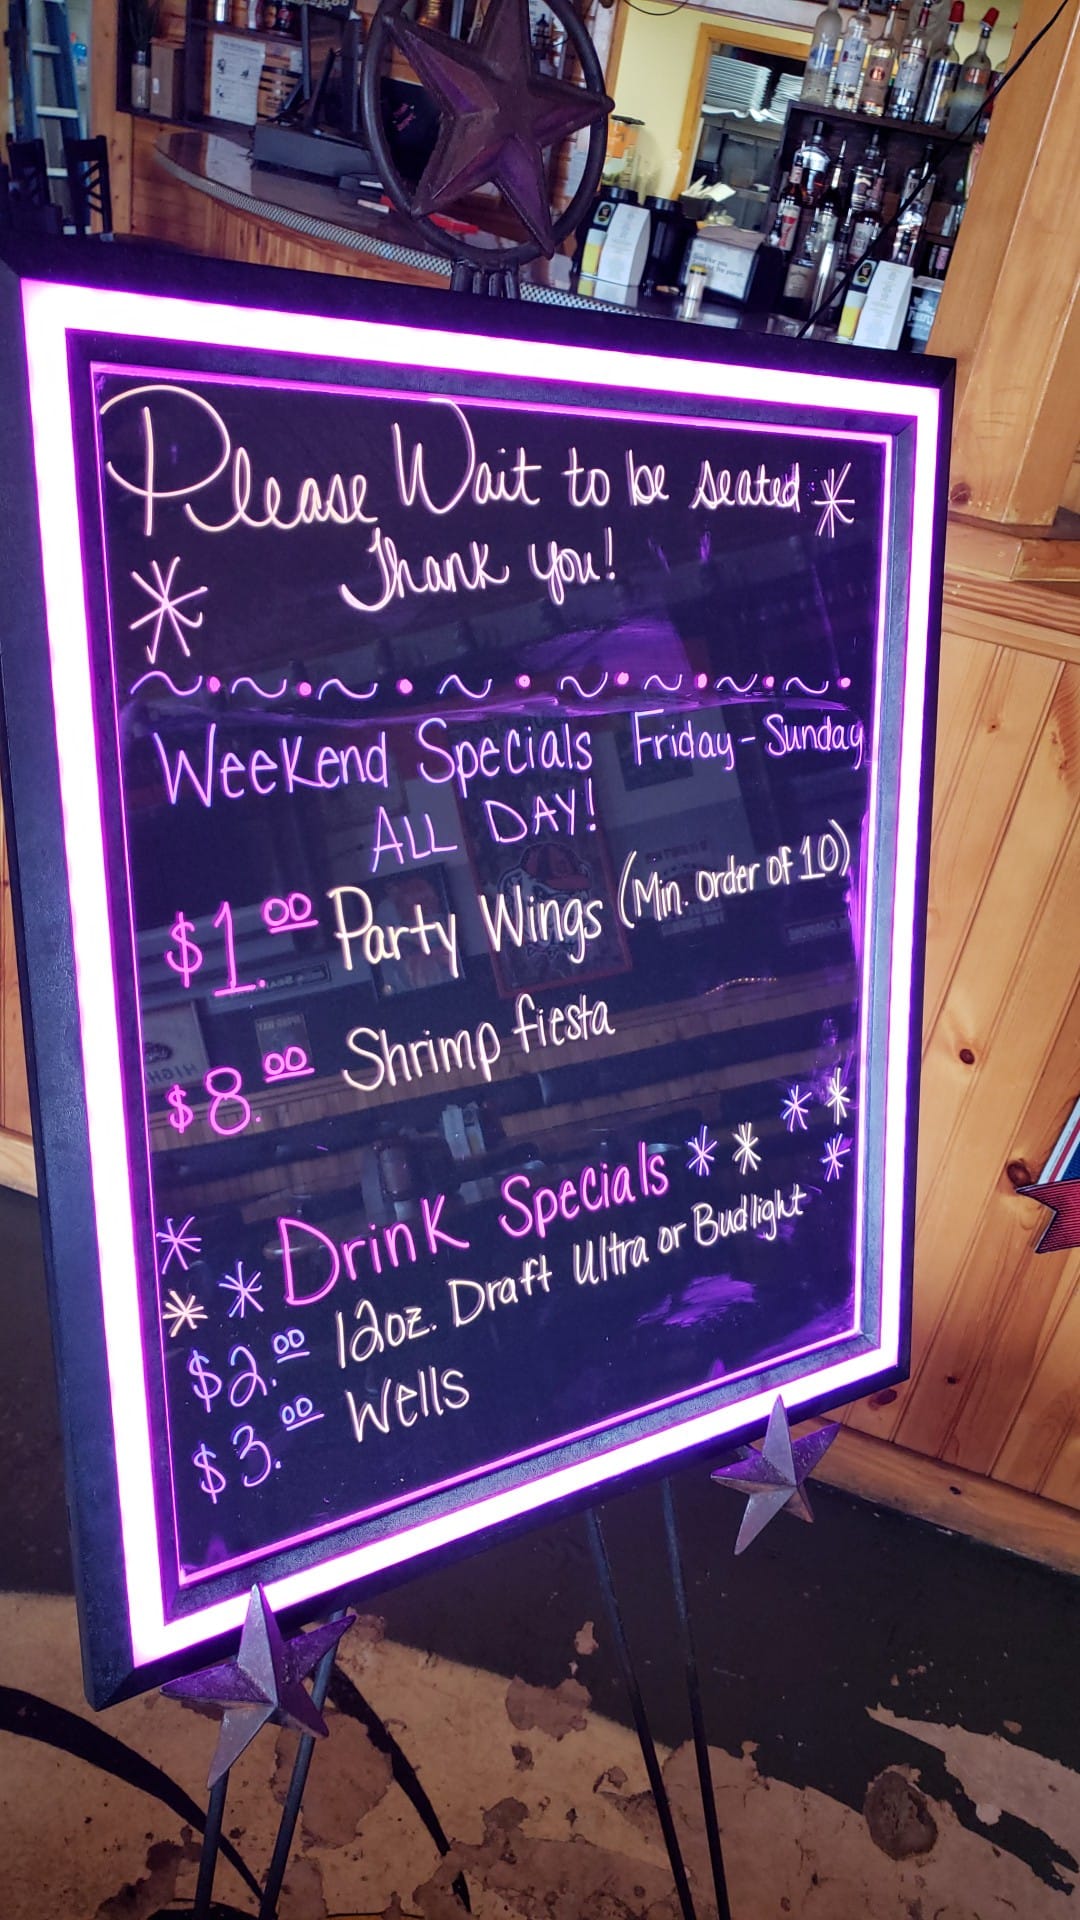 Please Wait to be seated
Thank you!
Weekend Specials Friday - Sunday
ALL DAY!
$1.00 Party Wings (Min. order of 10)
$8.00 Shrimp fiesta
Drink Specials
$2.00 12oz. Draft Ultra or Budlight
$3.00 Wells